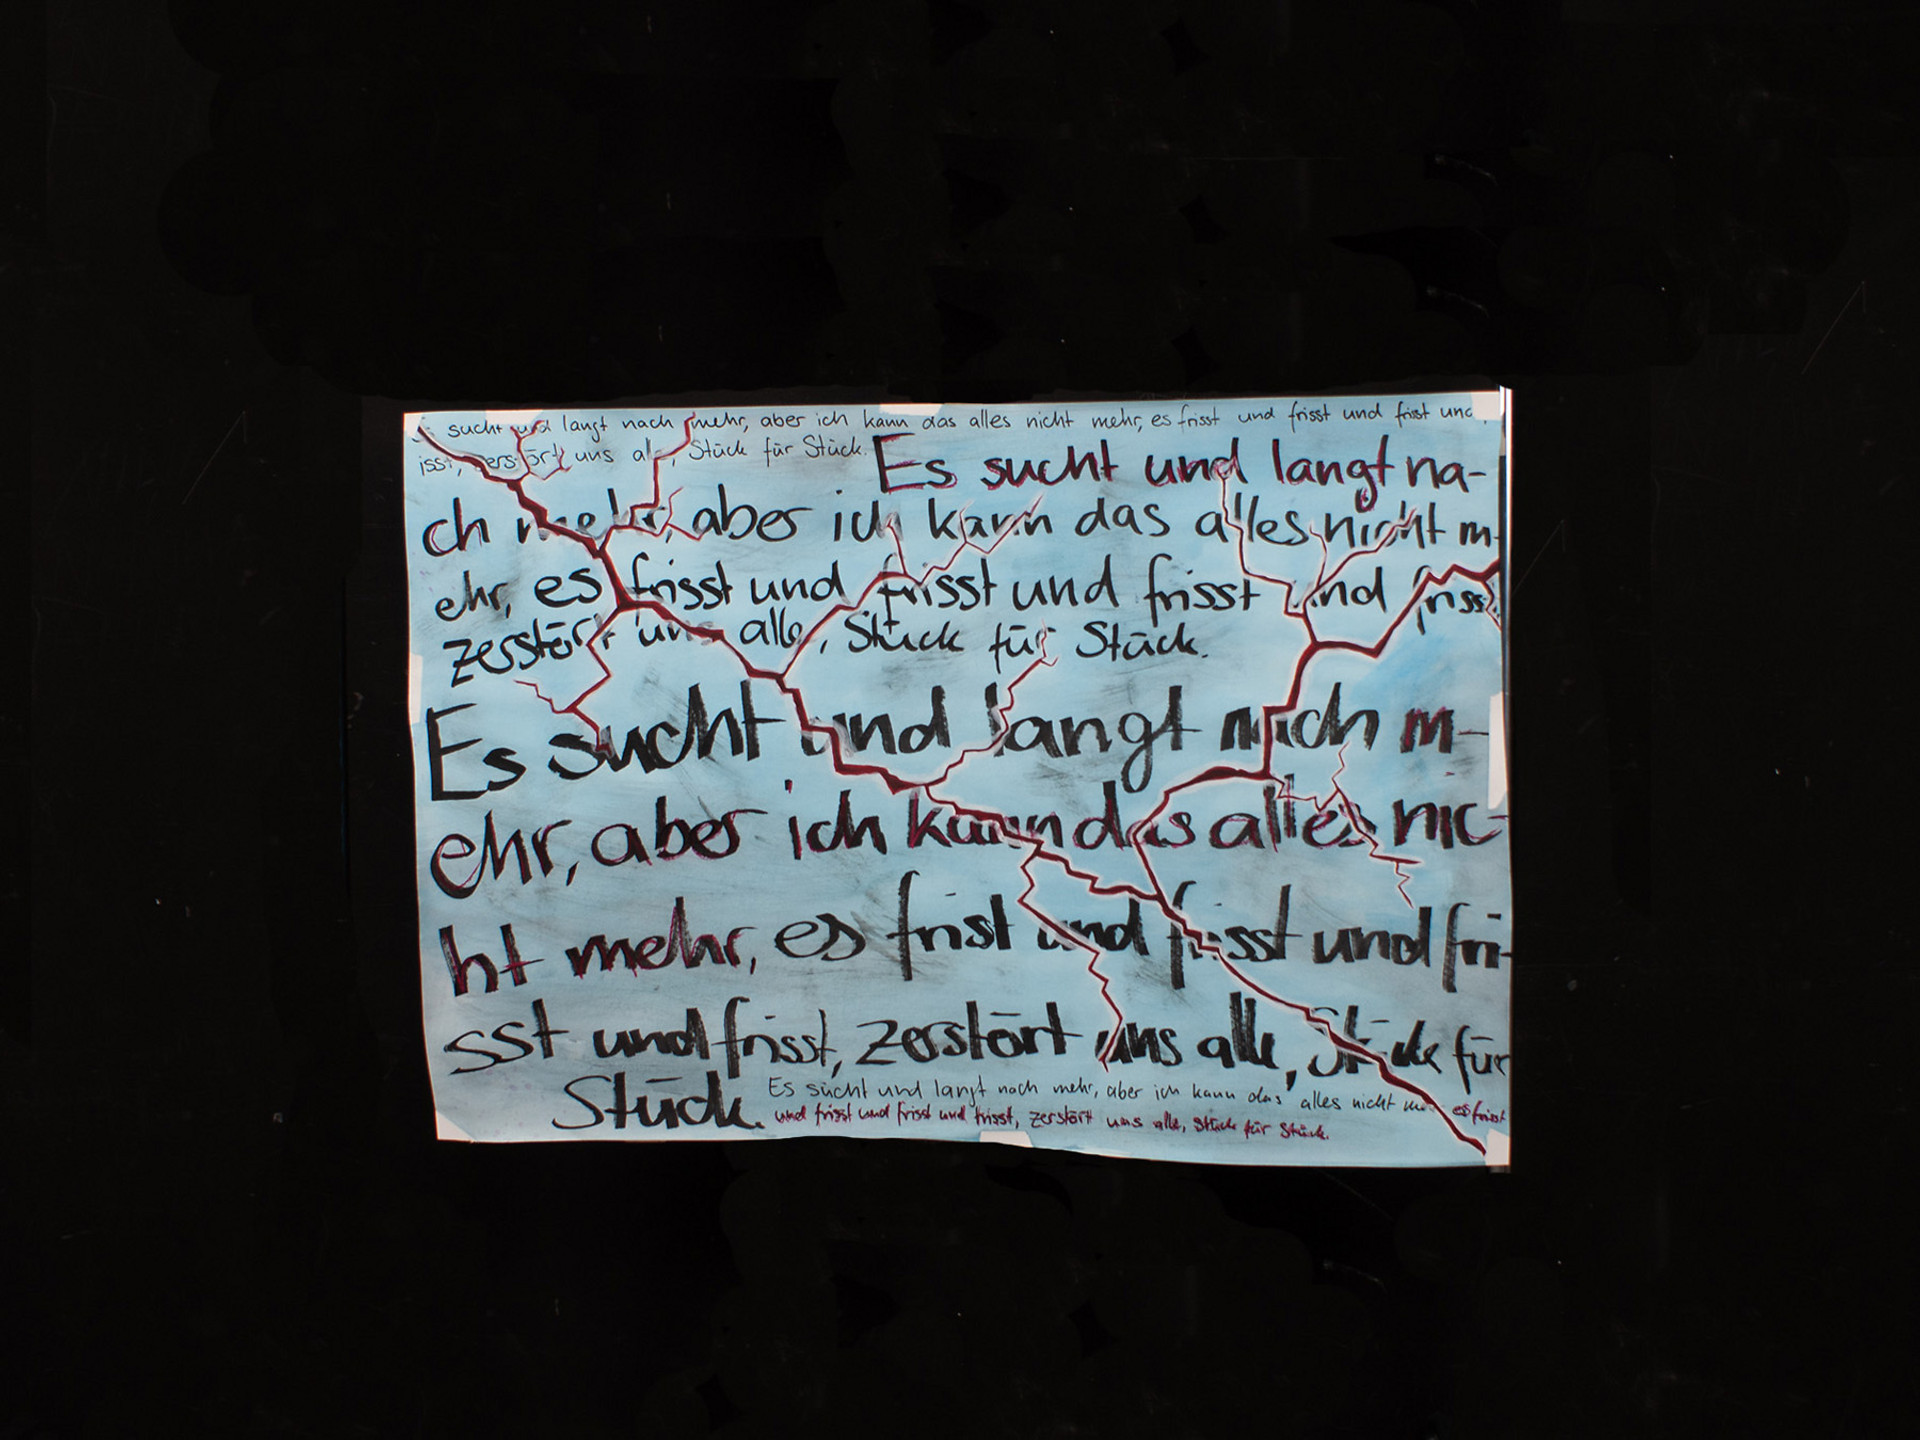 sucht und langt nach mehr, aber ich kann das alles nicht mehr, es frisst und frisst und frisst und
isst, zerstört uns alle, Stück für Stück.
Es sucht und langt na-
ch mehr, aber ich kann das alles nicht m-
ehr, es frisst und frisst und frisst und frisst,
zerstört uns alle, Stück für Stück.
Es sucht und langt nach m-
ehr, aber ich kann das alles nic-
ht mehr, es frist und frisst und fri-
sst und frisst, zerstört uns alle, Stück für
Stück.
Es sucht und langt nach mehr, aber ich kann das alles nicht es frisst
und frisst und frisst und frisst, zerstört uns alle, Stück für Stück.